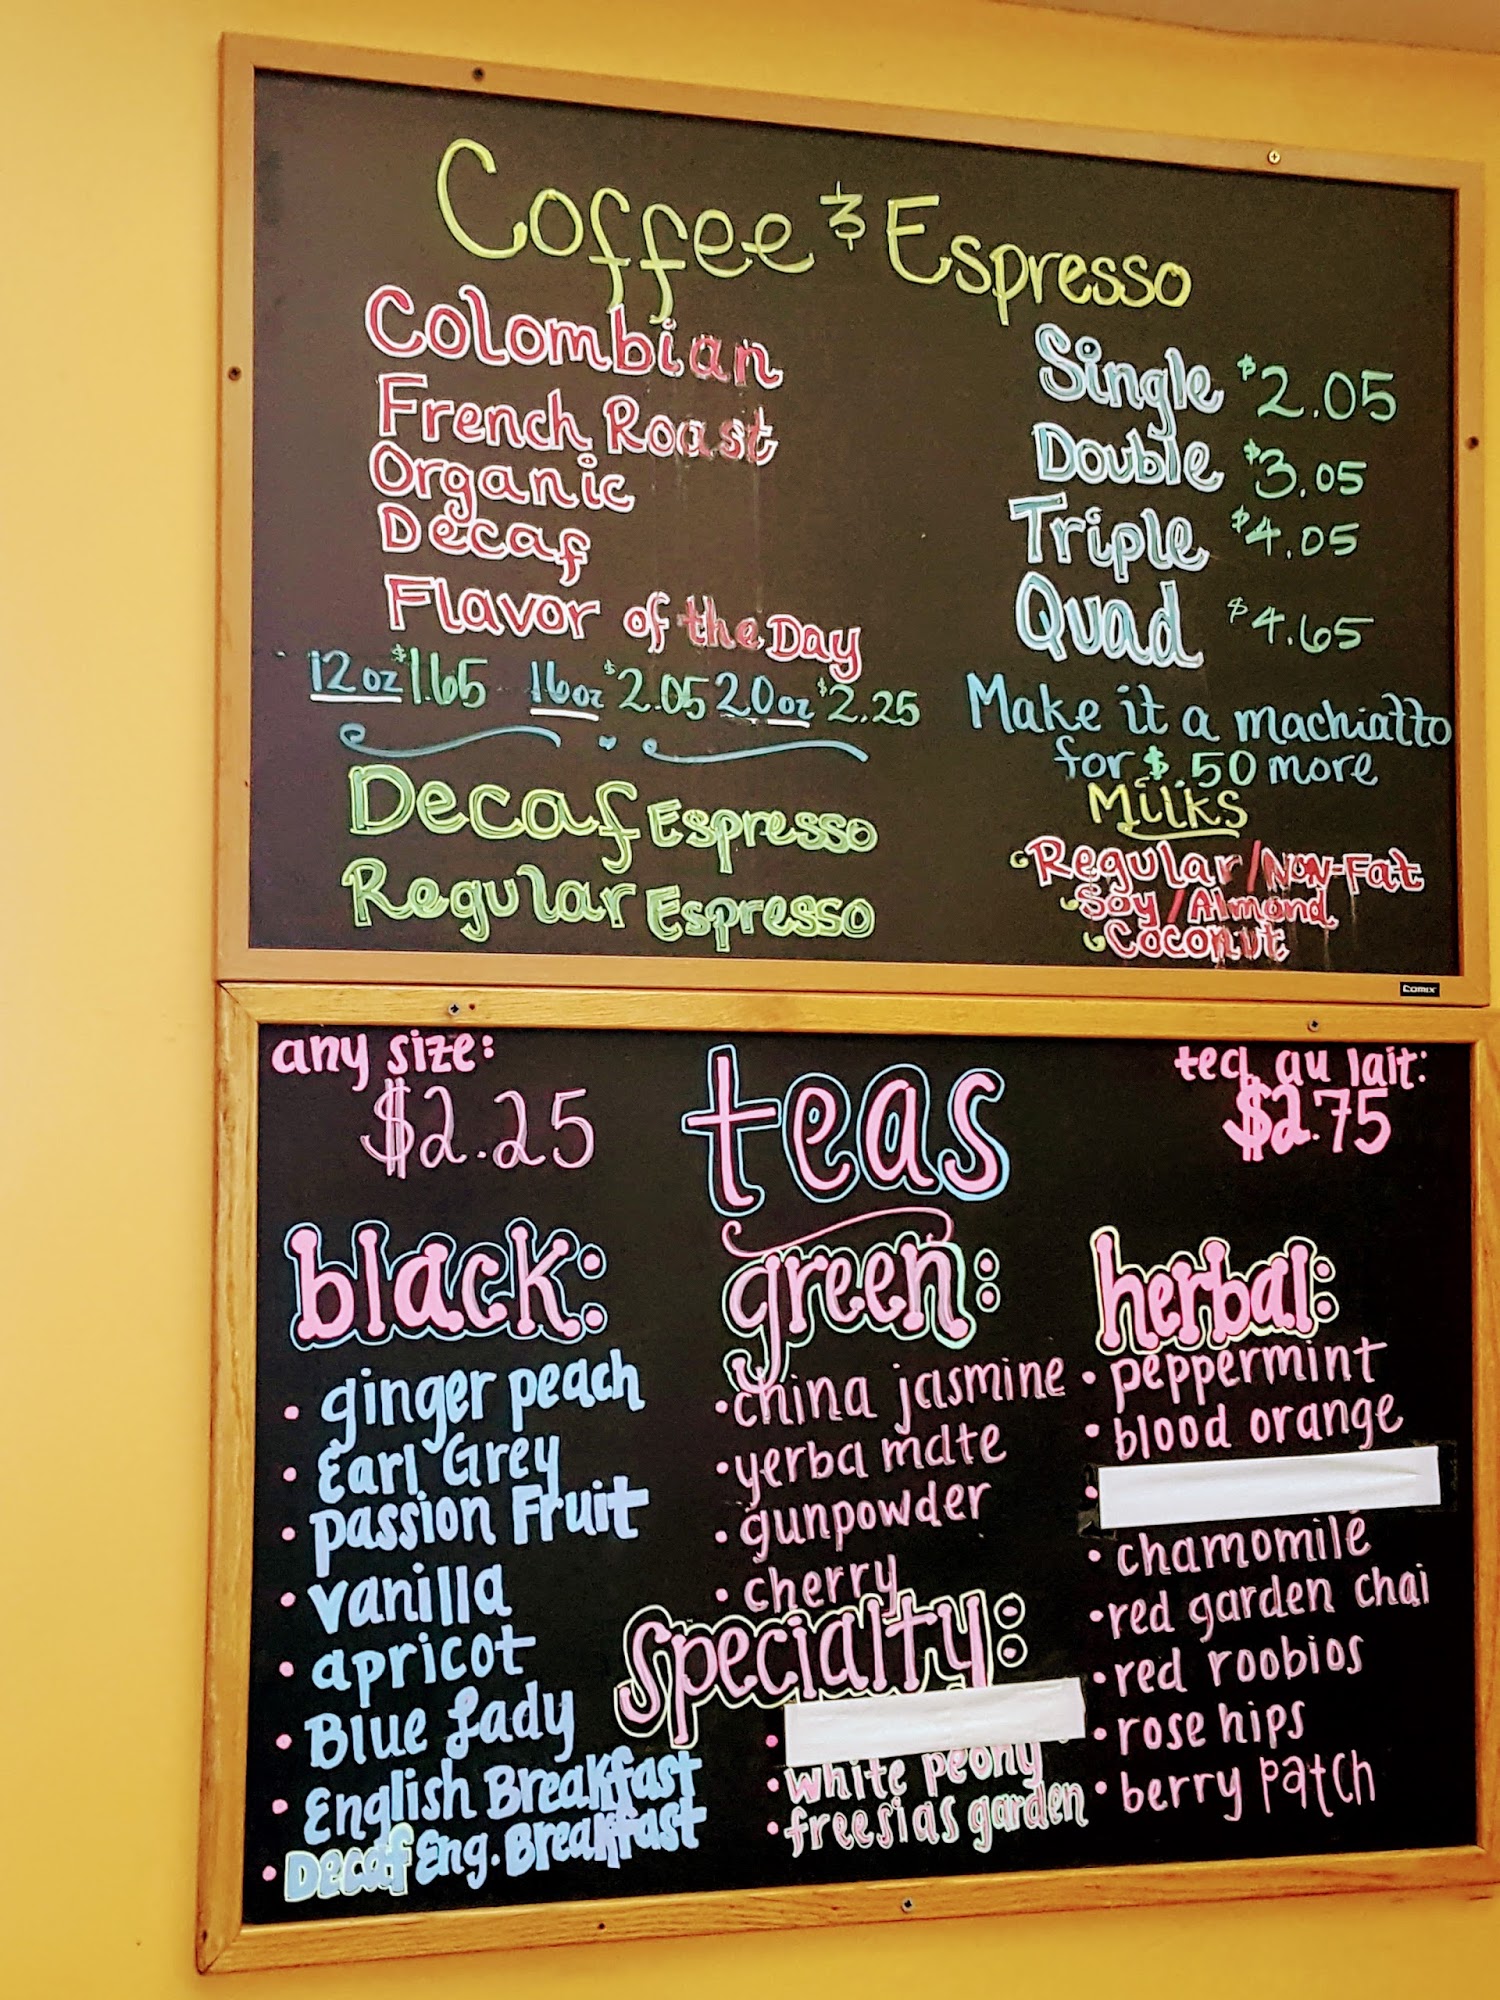 Coffee & Espresso
Colombian
French Roast
Organic
Decaf
Flavor of the Day
12 oz $1.65 16 oz $2.05 20 oz $2.25
Decaf Espresso
Regular Espresso
Single $2.05
Double $3.05
Triple $4.05
Quad $4.65
Make it a machiatto
for $.50 more
Milks
Regular/Non-Fat
Soy/Almond
Coconut
COMIX
any size:
$2.25
teas
tea au lait:
$2.75
black:
• ginger peach
• Earl Grey
• passion Fruit
• vanilla
• apricot
• Blue Lady
• English Breakfast
• Decaf Eng. Breakfast
green:
• china jasmine
• yerba mate
• gunpowder
• cherry
specialty:
• white peony
• freesias garden
herbal:
• peppermint
• blood orange
• chamomile
• red garden chai
• red roobios
• rose hips
• berry patch